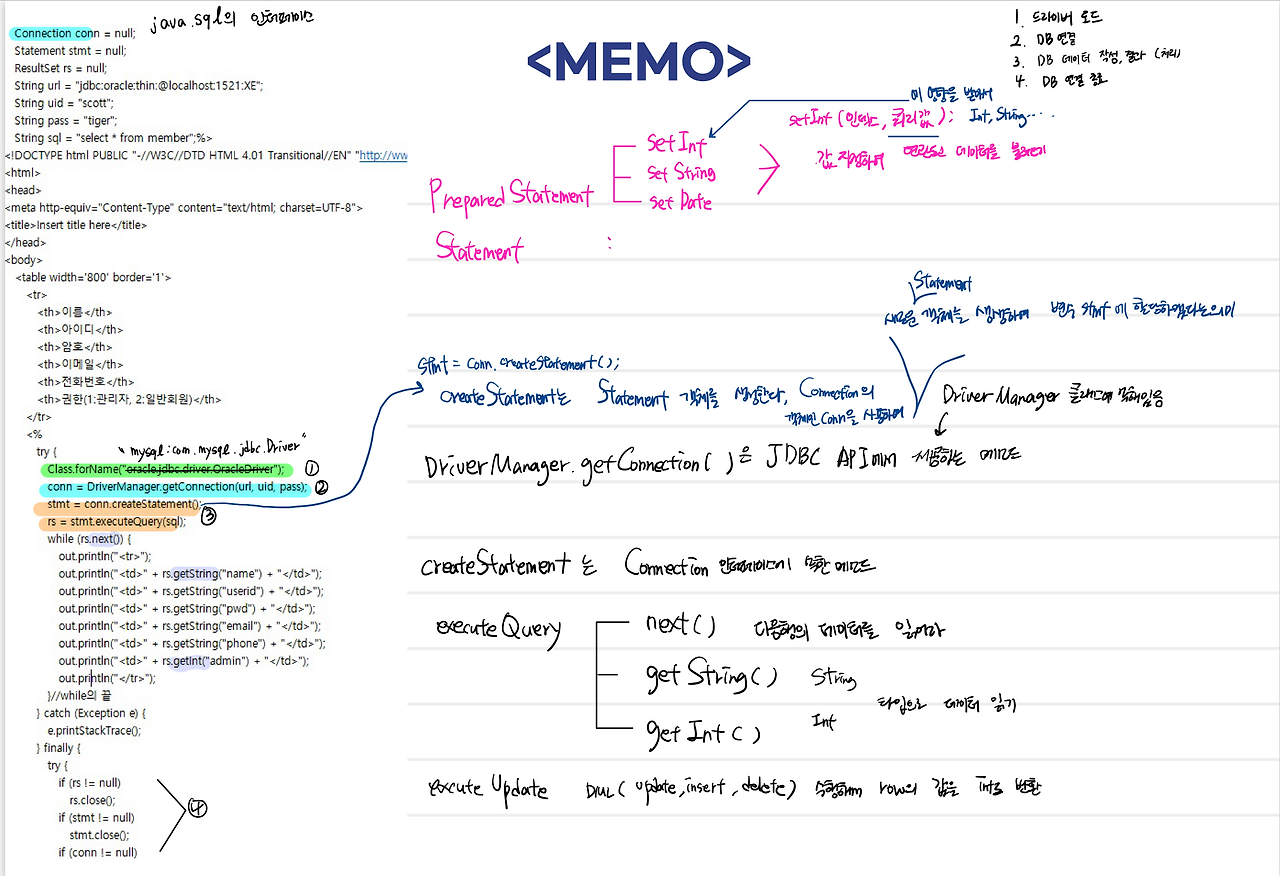 java.sql의 인터페이스
Connection conn = null;
Statement stmt = null;
ResultSet rs = null;
String url = "jdbc:oracle:thin:@localhost:1521:XE";
String uid = "scott";
String pass = "tiger";
String sql = "select * from member";%>
<!DOCTYPE html PUBLIC "-//W3C//DTD HTML 4.01 Transitional//EN" "http://ww
<html>
<head>
<meta http-equiv="Content-Type" content="text/html; charset=UTF-8">
<title>Insert title here</title>
</head>
<body>
<table width='800' border='1'>
<tr>
<th>이름</th>
<th>아이디</th>
<th>암호</th>
<th>이메일</th>
<th>전화번호</th>
<th>권한(1:관리자, 2:일반회원)</th>
</tr>
<%
try {
"mysql:com.mysql.jdbc.Driver"
Class.forName("oracle.jdbc.driver.OracleDriver"); ①
conn = DriverManager.getConnection(url, uid, pass); ②
stmt = conn.createStatement();
rs = stmt.executeQuery(sql); ③
while (rs.next()) {
out.println("<tr>");
out.println("<td>" + rs.getString("name") + "</td>");
out.println("<td>" + rs.getString("userid") + "</td>");
out.println("<td>" + rs.getString("pwd") + "</td>");
out.println("<td>" + rs.getString("email") + "</td>");
out.println("<td>" + rs.getString("phone") + "</td>");
out.println("<td>" + rs.getInt("admin") + "</td>");
out.println("</tr>");
}//while의 끝
} catch (Exception e) {
e.printStackTrace();
} finally {
try {
if (rs != null)
rs.close();
if (stmt != null)
stmt.close();
if (conn != null)
④
<MEMO>
1. 드라이버 로드
2. DB 연결
3. DB 데이터 작성, 결과 (처리)
4. DB 연결 종료
이 영향을 받아서
setInt (인덱스, 쿼리값); Int, String....
값 지정하여 연관되고 데이터를 불러오기
PreparedStatement
setInt
set String
set Date
Statement :
Statement
새로운 객체를 생성하여 변수 stmt에 할당하였다는의미
stmt = conn.createStatement();
createStatement는 Statement 객체를 생성한다, Connection의
객체인 conn을 사용하여
DriverManager 클래스에 속해있음
DriverManager.getConnection()은 JDBC API에서 사용하는 메모드
createStatement 는 Connection 인터페이스에 속한 메모드
executeQuery
next() 다음행의 데이터를 읽어라
get String() String
타입으로 데이터 읽기
get Int() Int
excute Update DML( update, insert, delete) 수행하여 row의 값을 int로 반환